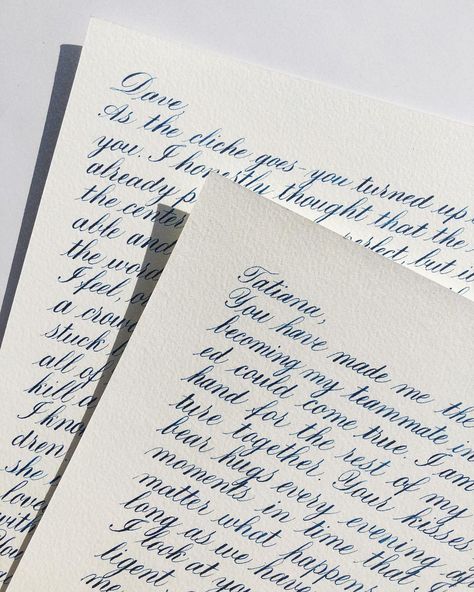 Dave,
As the cliche goes-you turned up
you. I honestly thought that the
already p perfect, but u
the center
able and
the word
I feel, o
a crowd
stuck
all of
kill o
I kno
dren
she
love
with
Tatiana,
You have made me the
becoming my teammate in
ed could come true. I am
hand for the rest of my
ture together. Your kisses,
bear hugs every evening a
moments in time that
matter what happens
long as we have
I look at you
ligent
me